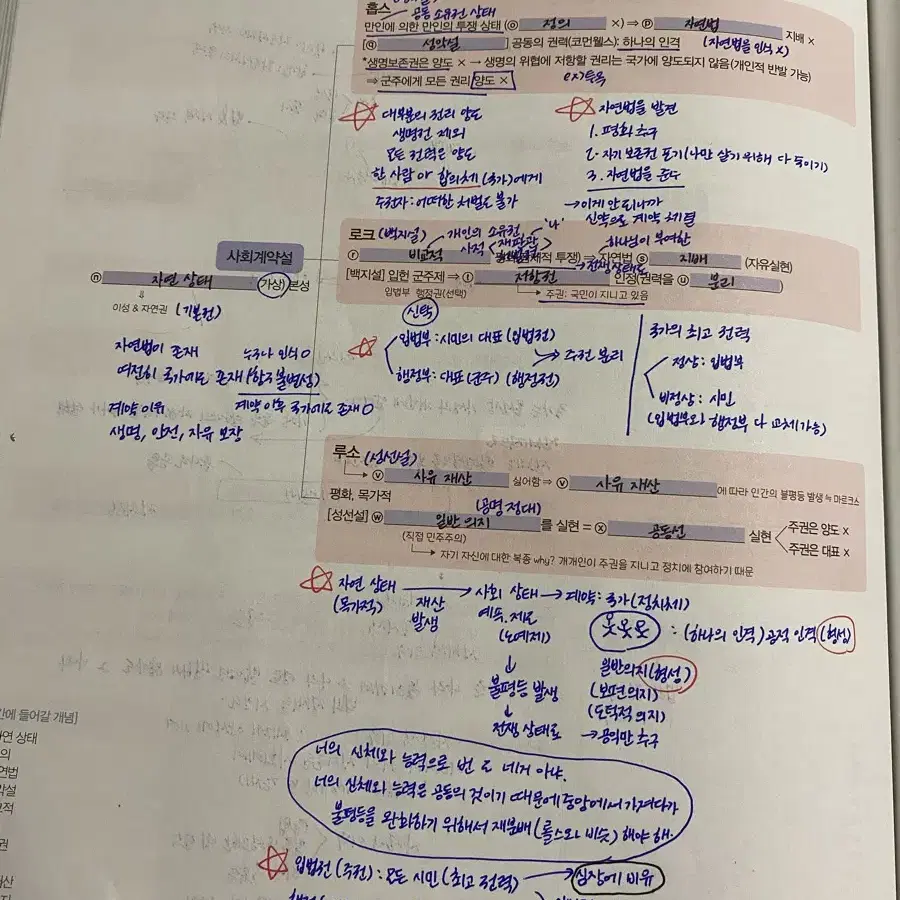 홉스
공동 소유권 상태
만인에 의한 만인의 투쟁 상태 (ⓞ 정의 ×) ⇒ ⓟ 자연법 지배 ×
[ⓠ 성악설 ] 공동의 권력(코먼웰스): 하나의 인격 (자연법을 인식 X)
*생명보존권은 양도 × → 생명의 위협에 저항할 권리는 국가에 양도되지 않음(개인적 반발 가능)
⇒ 군주에게 모든 권리 양도 ×
대부분의 권리 양도
생명권 제외
모든 권력은 양도
한 사람 or 합의체 (국가)에게
주권자 : 어떠한 처벌도 불가
자연법을 발견
1. 평화 추구
2. 자기 보존권 포기 (나만 살기 위해 다 죽이기)
3. 자연법을 준수
→ 이게 안 되니까
신약으로 계약 체결
사회계약설
ⓝ 자연 상태 (가상) 본성
이성 & 자연권 (기본권)
자연법이 존재 누구나 인식 O
여전히 국가에도 존재 (항구불변성)
계약 이유 계약 이후 국가에도 존재 O
생명, 안전, 자유 보장
로크 (백지설) 개인의 소유권 '나'
사적 재판관
하나님이 부여한
ⓡ 비교적 투쟁) ⇒ 자연법 ⓢ 지배 (자유실현)
전쟁상태로
[백지설] 입헌 군주제 ⇒ ⓣ 저항권 인정(권력을 ⓤ 분리
입법부 행정권(선택) 주권: 국민이 지니고 있음
신탁
입법부 : 시민의 대표 (입법권)
행정부 : 대표 (군주) (행정권)
→ 주권 분리
국가의 최고 권력
정상 : 입법부
비정상 : 시민
(입법부와 행정부 다 교체 가능)
루소 (성선설)
ⓥ 사유 재산 싫어함 ⇒ ⓥ 사유 재산 에 따라 인간의 불평등 발생 ≒ 마르크스
평화, 목가적
[성선설] ⓦ 일반 의지 를 실현 = ⓧ 공동선 실현 주권은 양도 ×
(직접 민주주의) 주권은 대표 ×
자기 자신에 대한 복종 why? 개개인이 주권을 지니고 정치에 참여하기 때문
자연 상태 → 사회 상태 → 계약 : 국가 (정치체)
(목가적) 재산
발생
예속. 제도
(노예제)
불평등 발생
전쟁 상태로
: (하나의 인격) 공적 인격 (형성)
일반의지 (형성)
(보편의지)
(도덕적 의지)
→ 공익만 추구
너의 신체와 능력으로 번 돈 네거 아냐.
너의 신체와 능력은 공동의 것이기 때문에 중앙에서 가져다가
불평등을 완화하기 위해서 재분배 (롤스와 비슷) 해야 해.
입법권 (주권) : 모든 시민 (최고 권력) → 심장에 비유
간에 들어갈 개념]